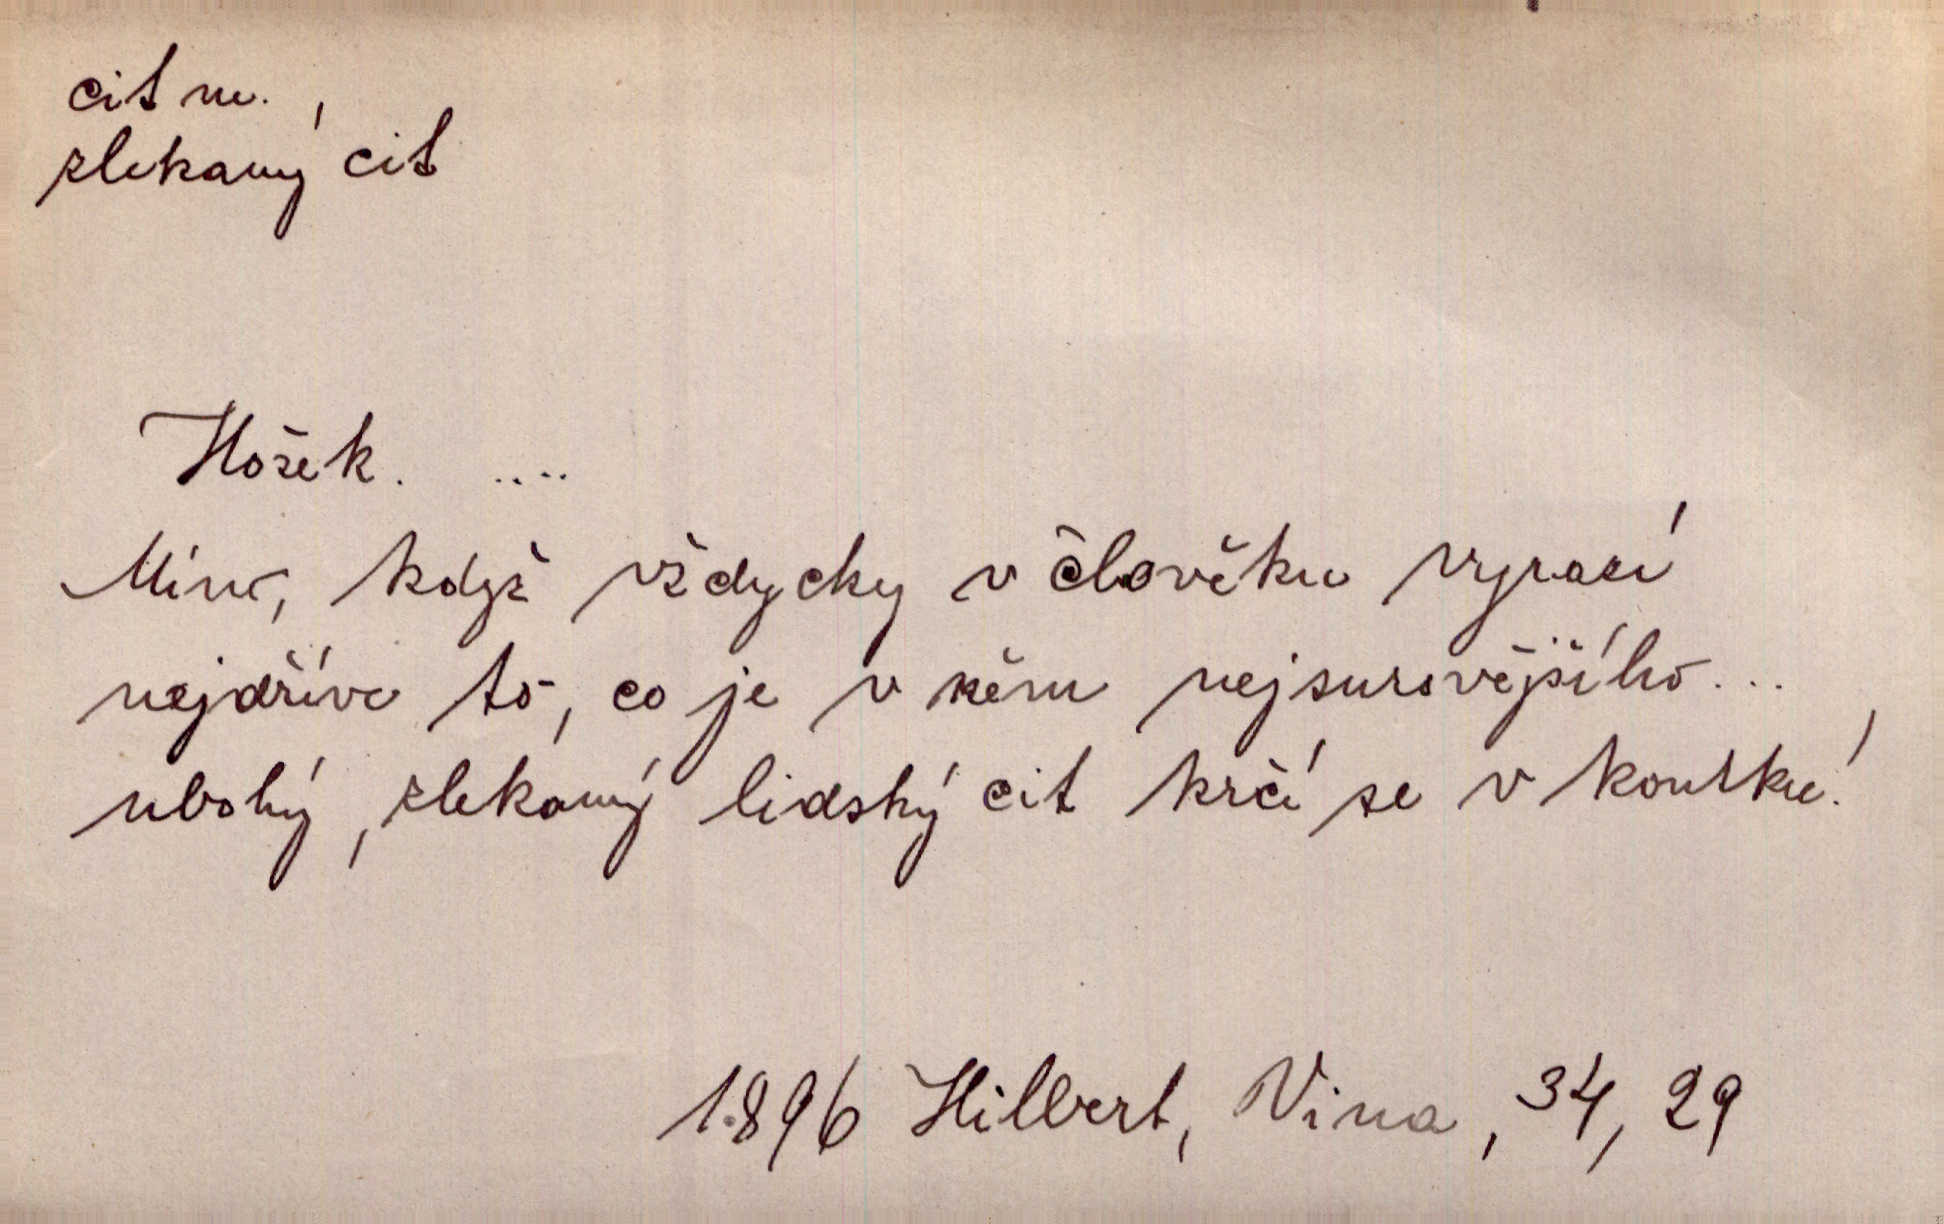 cit m.
zlekaný cit
Hošek. ....
Míno, když vždycky v člověku vyrazí
nejdříve to, co je v něm nejsurovějšího...
ubohý, zlekaný lidský cit krčí se v koutku!
1896 Hilbert, Vina, 34, 29